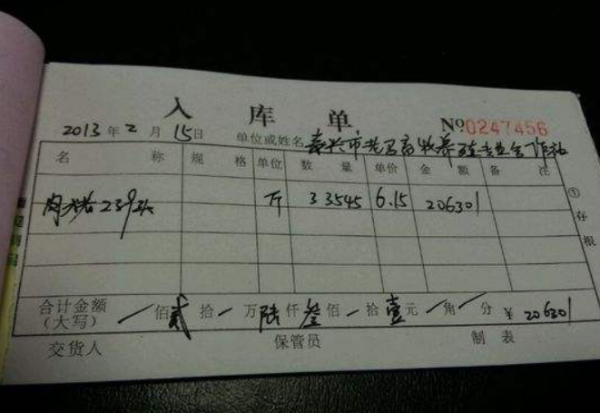 入库单
№0247456
2013年2月15日 单位或姓名 嘉兴市
名称 规格 单位 数量 单价 金额 备注
239头 斤 33545 6.15 206301
①存根
合计金额(大写) /佰贰拾/万陆仟叁佰/拾壹元/角/分 ¥206301
交货人 保管员 制表